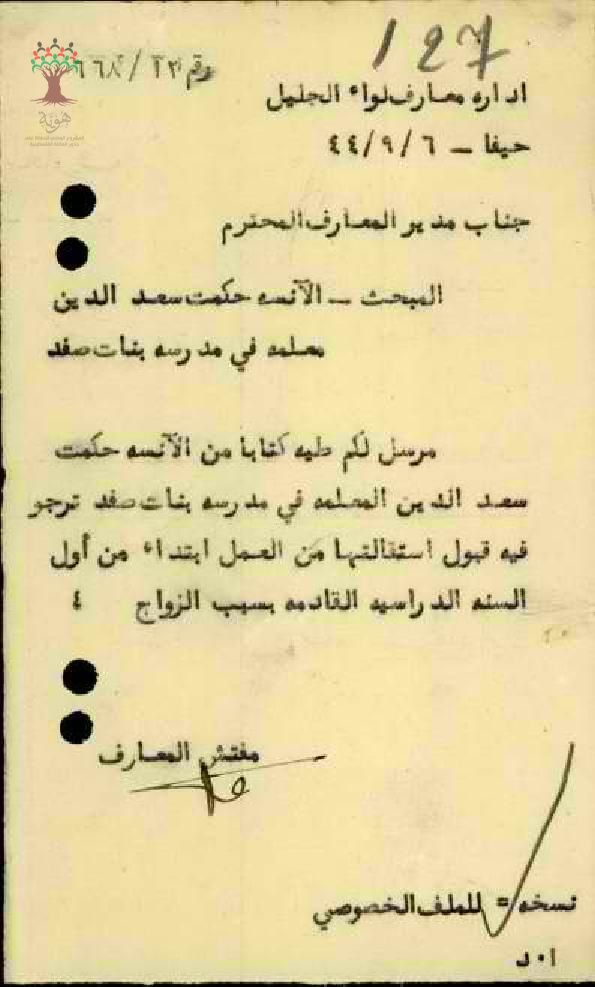 127
رقم ٦٦٨/١٢٣
اداره معارف لواء الجليل
حيفا – ٤٤/٩/٦
هوية
جناب مدير المعارف المحترم
المبحث – الآنسه حكمت سعد الدين
معلمه في مدرسه بنات صفد
مرسل لكم طيه كتابا من الآنسه حكمت
سعد الدين المعلمه في مدرسه بنات صفد ترجو
فيه قبول استقالتها من العمل ابتداء من أول
السنه الدراسيه القادمه بسبب الزواج ٤
مفتش المعارف
نسخه = للملف الخصوصي
ا٠د